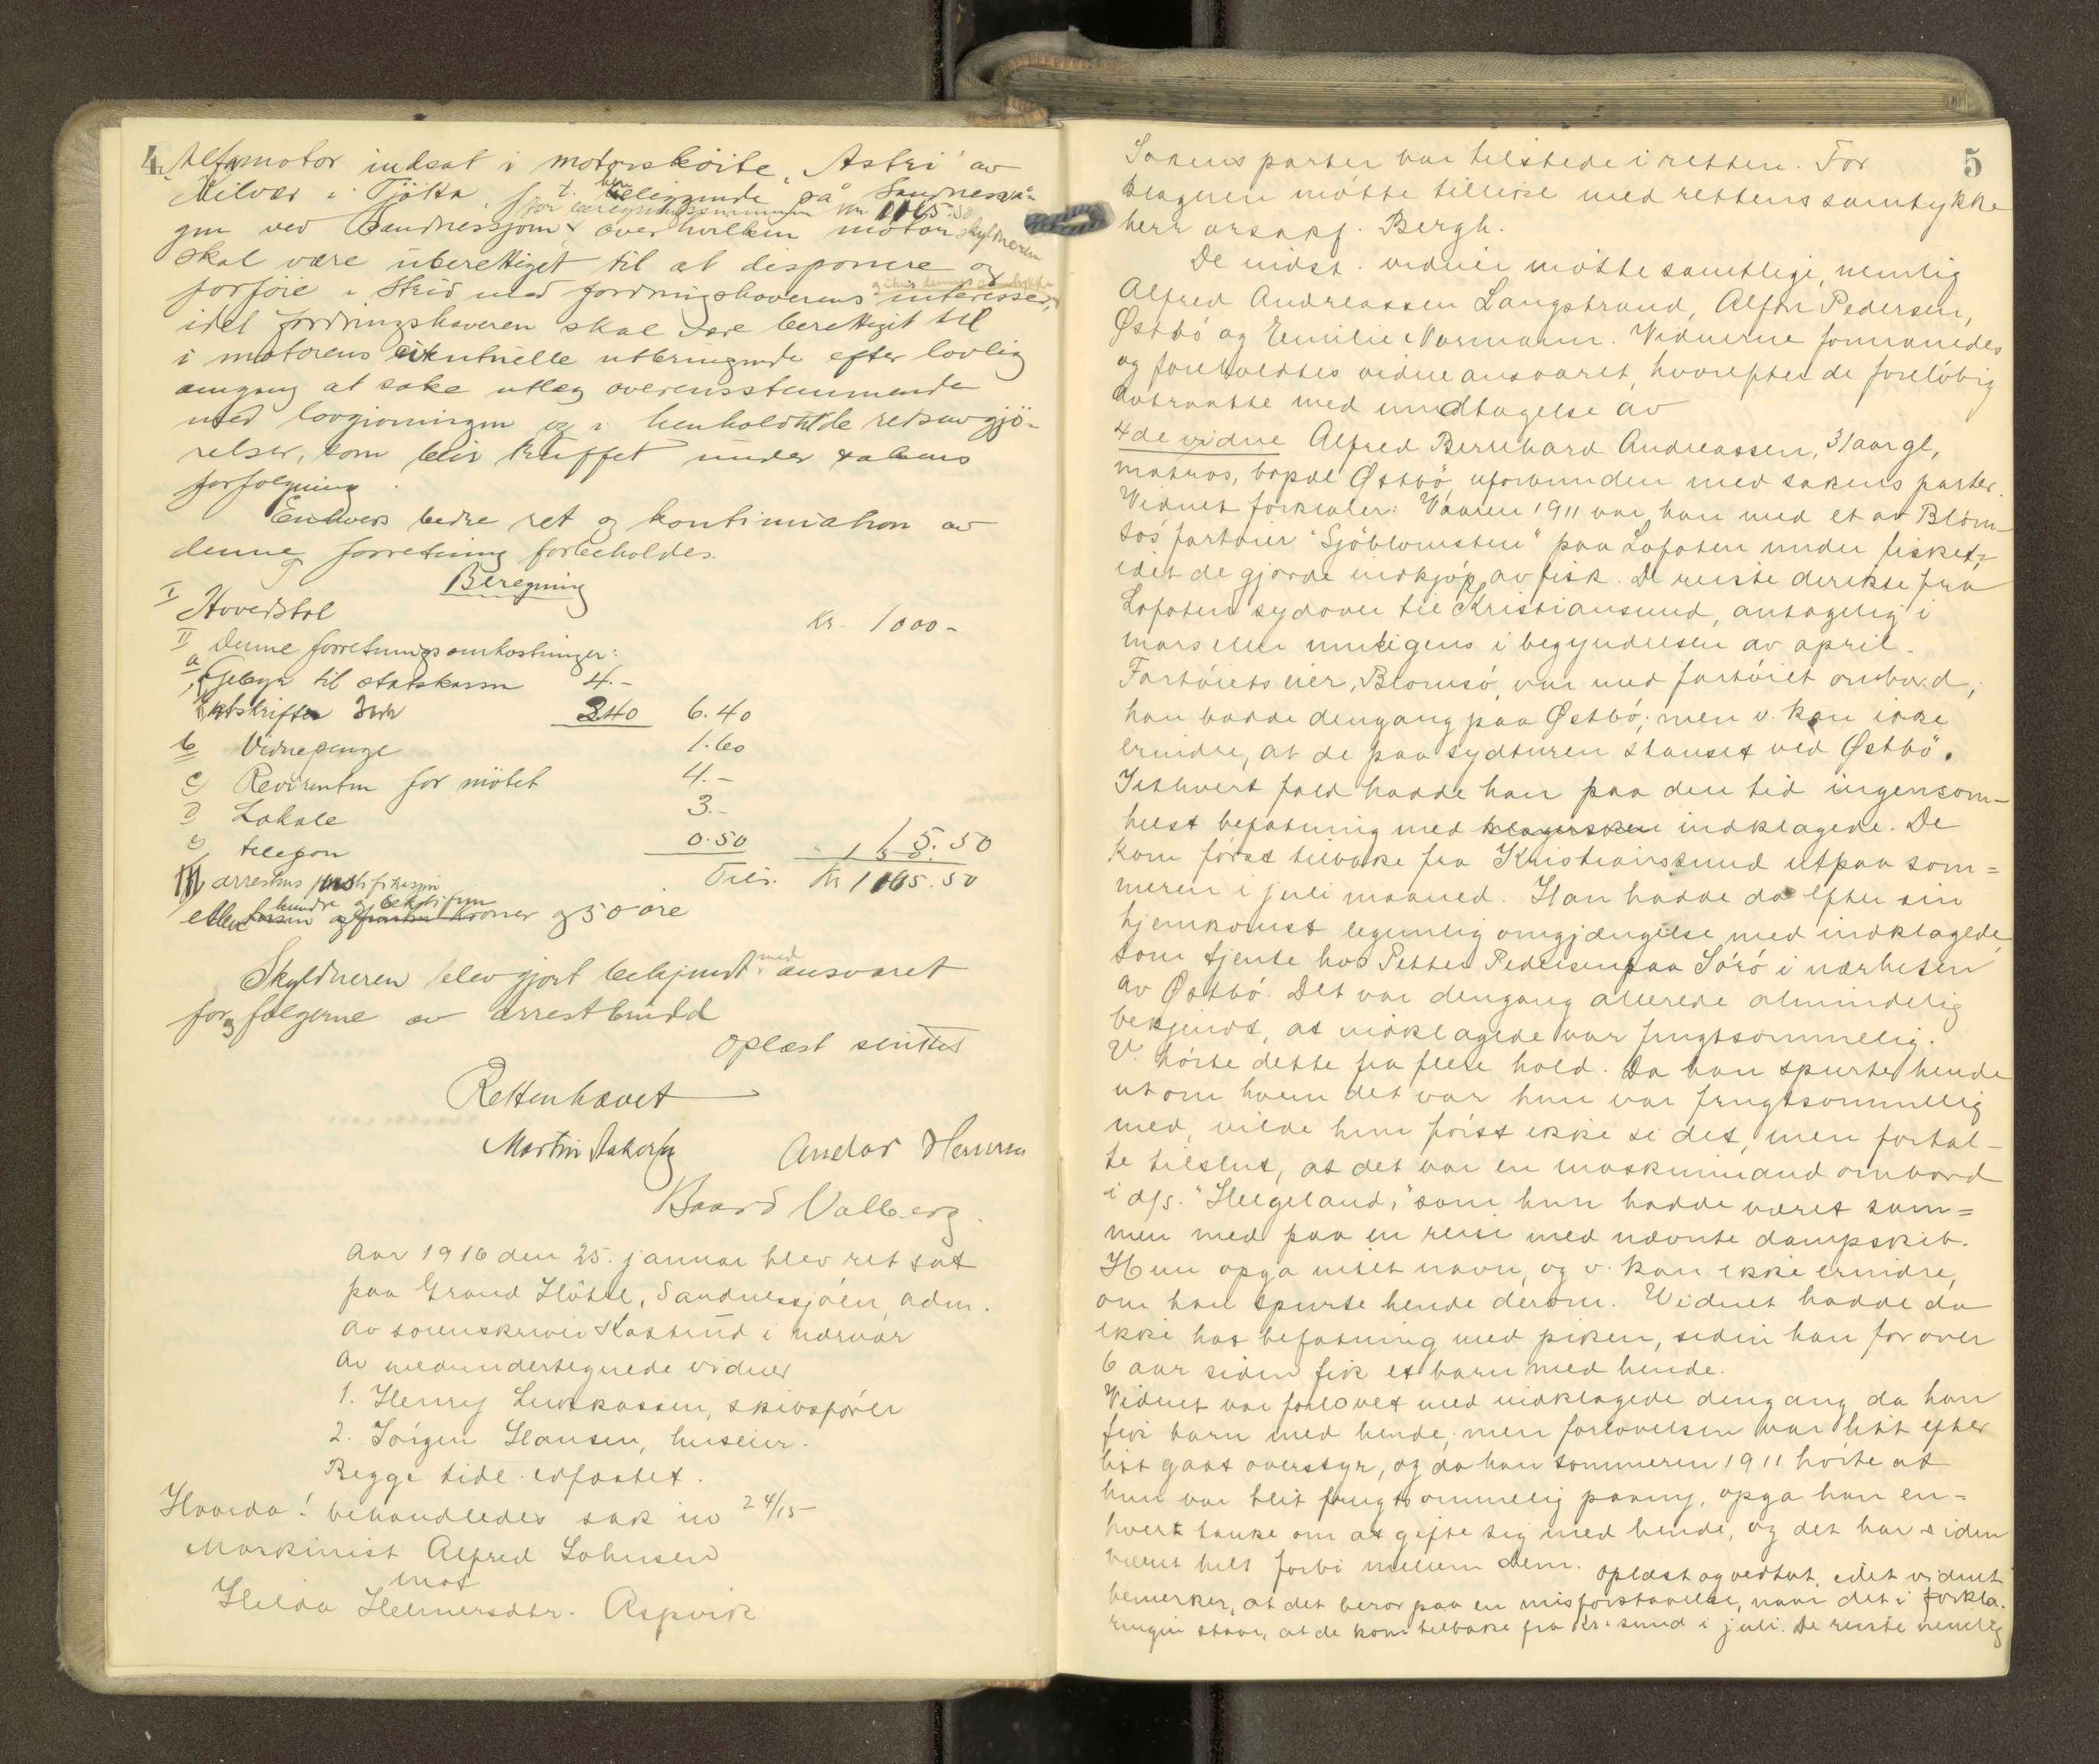 4
Alfamotor indsat i motorskøite "Astri" av
Milvær i Tjøtta, f. t. beliggende på Sandnessjø-
for beregningssummen kr 1115.50
gen ved Sandnessjøen over hvilken motor skyldneren
skal være uberettiget til at disponere og
forføie i strid med fordringshaverens interesser,
idet fordringshaveren skal være berettiget til
i motorens eventuelle utbringende efter lovlig
omgang at søke utlæg overensstemmende
med lovgivningen og i henhold til de retsavgjø-
relser, som blir truffet under sakens
forfølgning.
Enhvers bedre ret og kontinuation av
denne forretning forbeholdes.
Beregning
I Hovedstol kr. 1000-
II Denne forretnings omkostninger:
a, Gebyr til statskassen 4.-
Utskrifter 2.40 6.40
b Vidnepenge 1.60
c) Rekvirenten for møtet 4.-
d) Lokale 3.-
e) telefon 0.50 15.50
III arrestens justifikasjon
Tils. kr 1165.50
ellevehundre og sekstifem kroner og 50 øre
Skyldneren blev gjort bekjendt med ansvaret
for følgerne av arrestbrudd
Oplæst sluttet
Retten hævet
Martin Jakobsen Andor Hansen
Baard Valberg.
Aar 1916 den 25. januar blev ret sat
paa Grand Hôtel, Sandnessjøen, adm.
av sorenskriver Kastrud i nærvær
av medundertegnede vidner
1. Henry Lukkassen, skibsfører
2. Jørgen Hansen, huseier.
Begge tidl. edfæstet.
Hvorda! behandledes sak no 24/15
Maskinist Alfred Johnsen
mot
Hilda Helmersdtr. Aspvik
5
Sakens parter var tilstede i retten. For
klageren møtte tillike med rettens samtykke
herr orsakf. Bergh.
De indst. vidner møtte samtlige, nemlig
Alfred Andreassen Langstrand, Alfon Pedersen,
Østbø og Emilie Normann. Vidnerne formanedes
og foreholdtes vidneansvaret, hvorefter de foreløbig
avtraatte med undtagelse av
4de vidne Alfred Bernhard Andreassen, 31 aar gl,
matros, bopæl Østbø, uforbunden med sakens parter.
Vidnet forklarer: Vaaren 1911 var han med et av Blom-
søs fartøier "Sjøblomsten" paa Lofoten under fisket,
idet de gjorde indkjøp av fisk. De reiste direkte fra
Lofoten sydover til Kristiansund, antagelig i
mars eller muligens i begyndelsen av april.
Fartøiets eier, Blomsø, var med fartøiet ombord;
han bodde dengang paa Østbø; men v. kan ikke
erindre, at de paa sydturen stanset ved Østbø.
Iethvert fald hadde han paa den tid ingensom-
helst befatning med klagersken indklagede. De
kom først tilbake fra Kristianssund utpaa som=
meren i juli maaned. Han hadde da efter sin
hjemkomst legemlig omgjængelse med indklagede,
som tjente hos Petter Pedersen paa Sørø i nærheten
av Østbø. Det var dengang allerede almindelig
bekjendt, at indklagede var frugtsommelig.
V. hørte dette fra flere hold. Da han spurte hende
ut om hvem det var hun var frugtsommelig
med, vilde hun først ikke si det, men fortal-
te tilslut, at det var en maskinmand ombord
i d/s. "Helgeland", som hun hadde været sam=
men med paa en reise med nævnte dampskib.
Hun opga intet navn, og v. kan ikke erindre,
om han spurte hende derom. Vidnet hadde da
ikke hat befatning med piken, siden han for over
6 aar siden fik et barn med hende.
Vidnet var forlovet med indklagede dengang da han
fik barn med hende; men forlovelsen var litt efter
litt gaat overstyr, og da han sommeren 1911 hørte at
hun var blit frugtsommelig paany, opga han en=
hver tanke om at gifte sig med hende, og det har siden
været helt forbi mellem dem. Oplæst og vedtat, idet vidnet
bemerker, at det beror paa en misforstaaelse, naar det i forkla-
ringen staar, at de kom tilbake fra Kr.sund i juli. De reiste nemlig